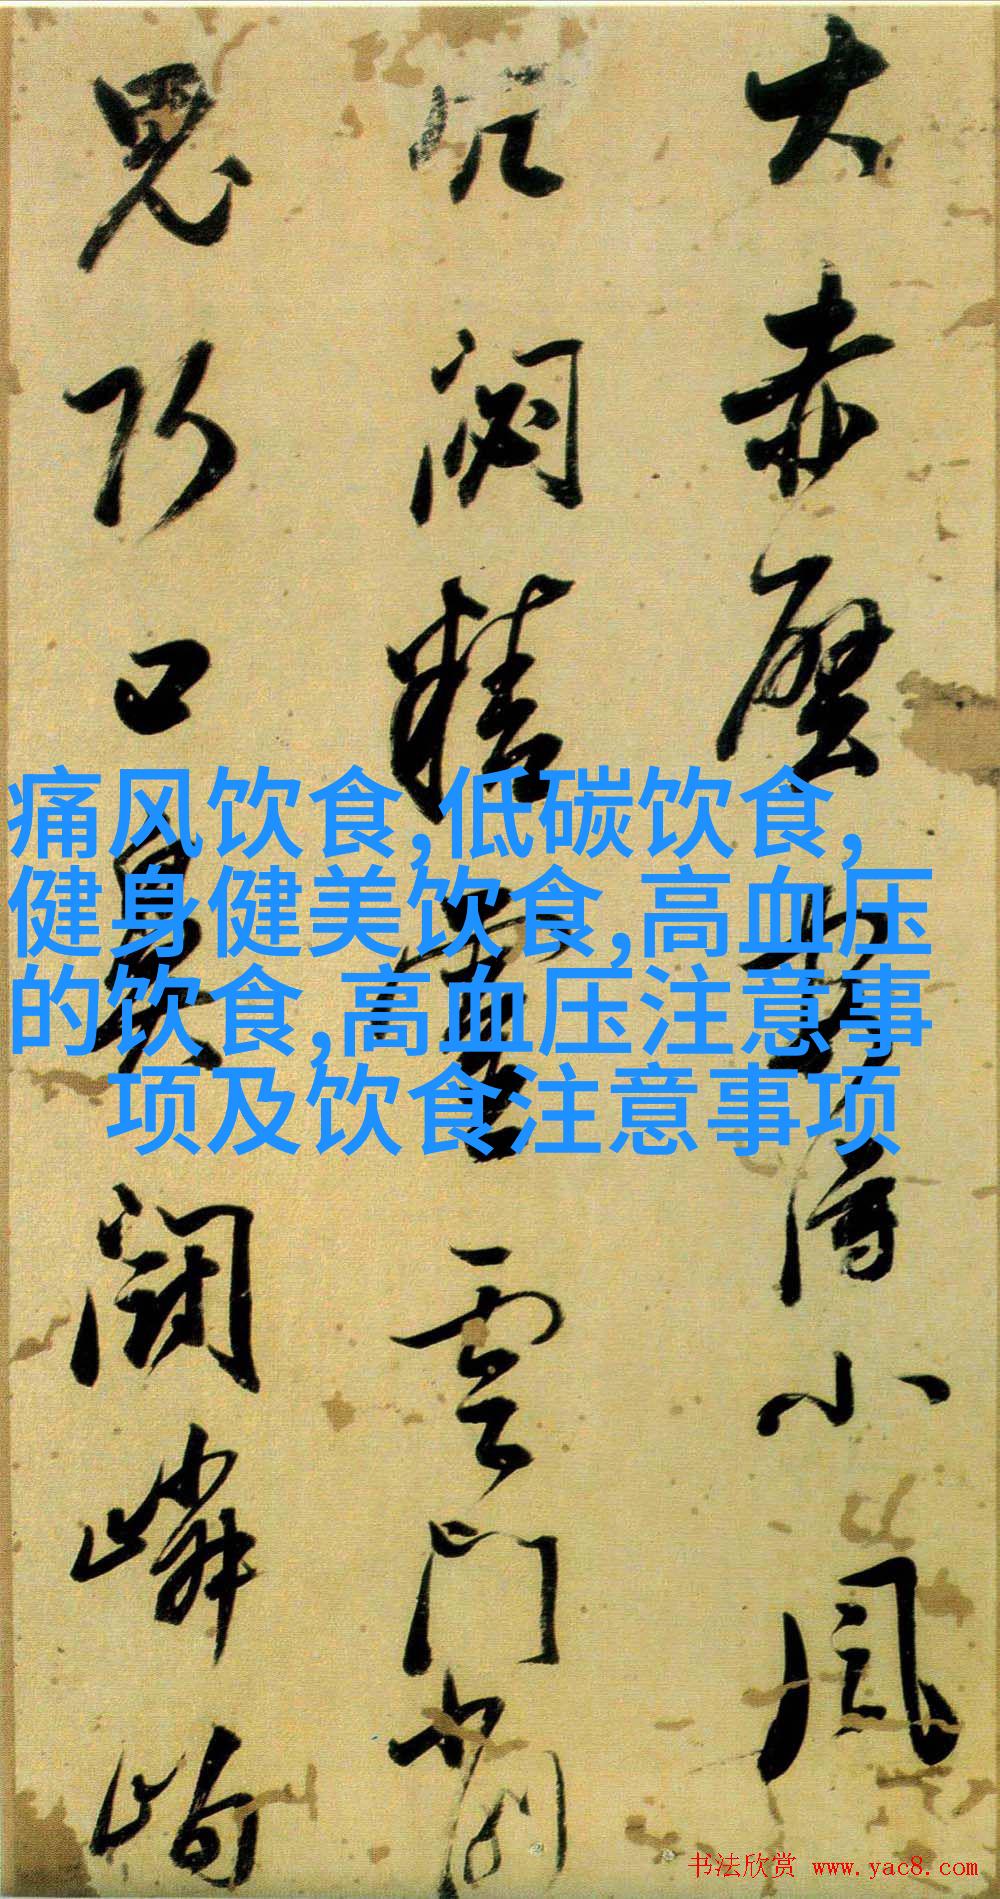 大赤壁
得小風
閟精靈雲門
思巧口鼻闊嶙峋
痛风饮食,低碳饮食,
健身健美饮食,高血压
的饮食,高血压注意事
项及饮食注意事项
书法欣赏 www.yac8.com